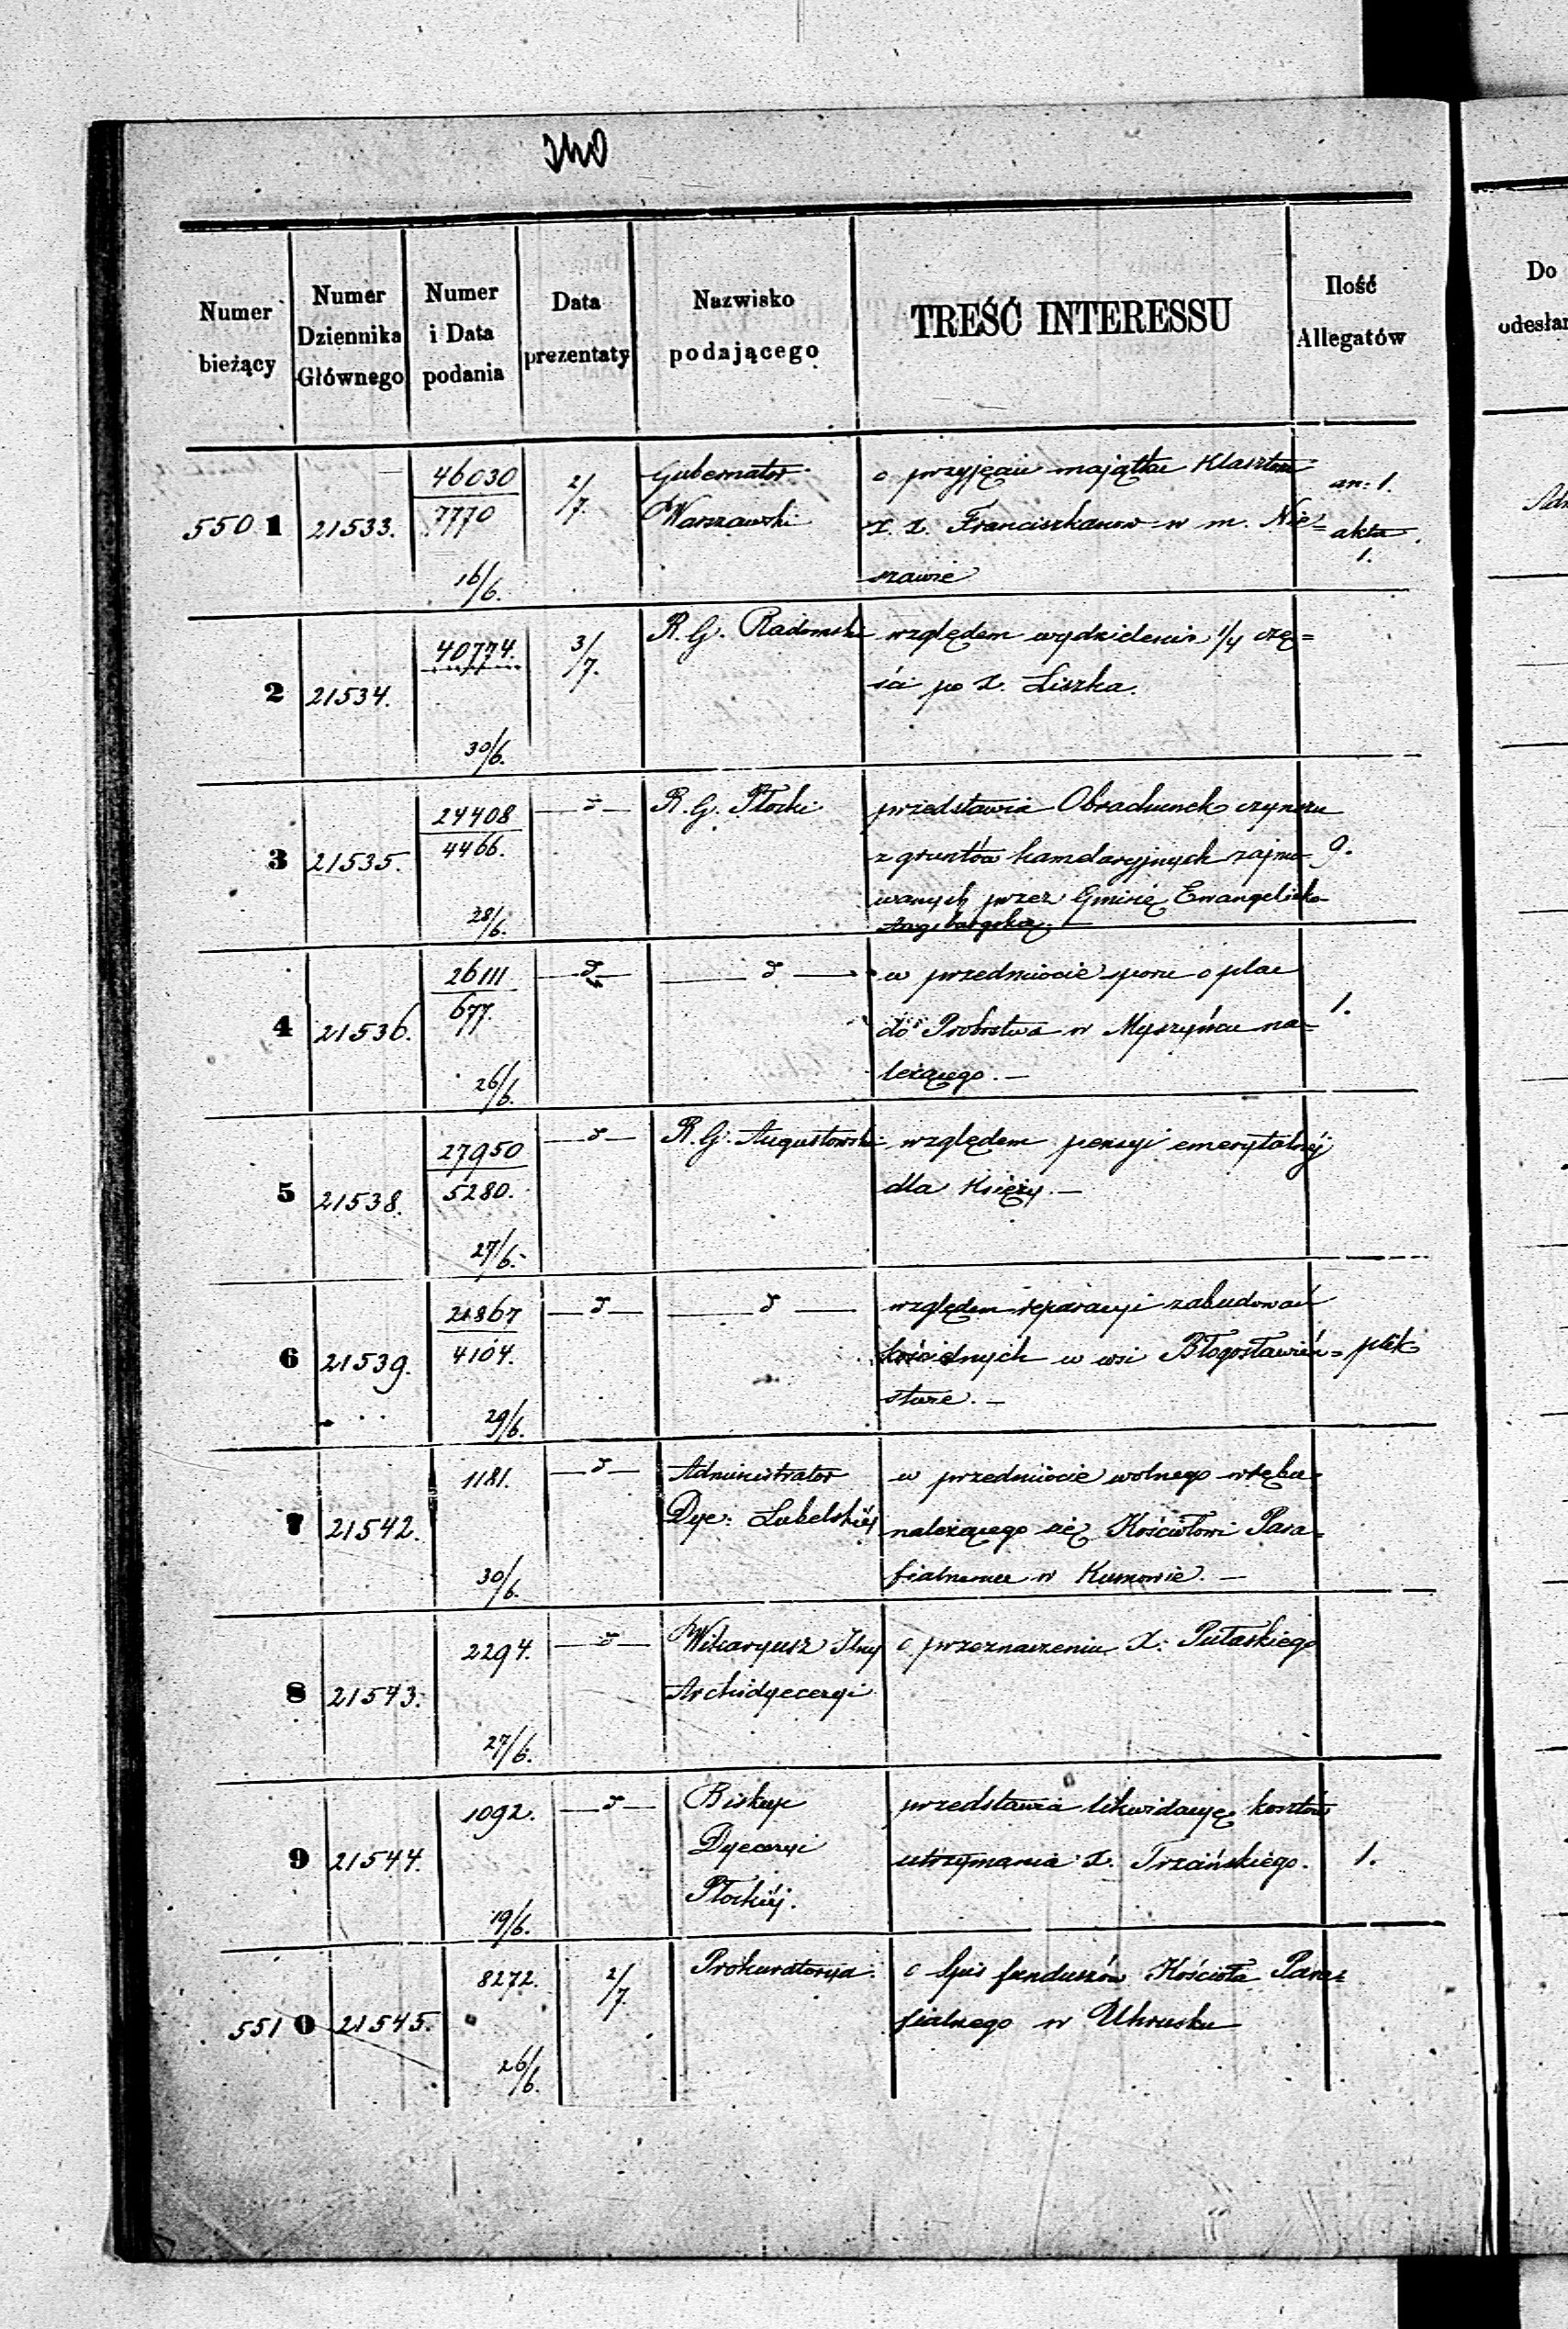 Numer bieżący | Numer Dziennika Głównego | Numer i Data podania | Data prezentaty | Nazwisko podającego | TREŚĆ INTERESSU | Ilość Allegatów
Do
odesłan
5501 | 21533. | 46030 / 7770 16/6. | 2/7. | Gubernator Warszawski | o przyjęciu majątku Klasztoru
X. X. Franciszkanów w m. Nie=
szawie | an: 1. akta 1.
2 | 21534. | 40774. 30/6. | 3/7. | R. G. Radomski | względem wydzielenia 1/4 czę=
ści po X. Liszka.
3 | 21535. | 24408 / 4466. 28/6. | — d — | R. G. Płocki | przedstawia Obrachunek czynszu
z gruntów kameralnych zajmo=
wanych przez Gminę Ewangelicko
Augsburgską. | 9.
4 | 21536. | 26111 / 677. 26/6. | — d — | — d — | w przedmiocie sporu o plac
do Probostwa w Myszyńcu na=
leżącego. — | 1.
5 | 21538. | 27950 / 5280. 27/6. | — d — | R. G. Augustowski | względem pensyi emerytalnéj
dla Księży. —
6 | 21539. | 21867 / 4104. 29/6. | — d — | — d — | względem reparacyi zabudowań
kościelnych w wsi Błogosławień=
stwie. — | plik
7 | 21542. | 1181. 30/6. | — d — | Administrator
Dyec: Lubelskiéj | w przedmiocie wolnego wrębu
należącego się Kościołowi Para=
fialnemu w Kumowie. —
8 | 21543. | 2294. 27/6. | — d — | Wikaryusz Jlny
Archidyecezyi | o przeznaczeniu X: Pułaskiego
9 | 21544. | 1092. 19/6. | — d — | Biskup
Dyecezyi
Płockiéj. | przedstawia likwidacyę kosztów
utrzymania X. Trzcińskiego. | 1.
5510 | 21545. | 8272. 26/6. | 2/7. | Prokuratorya | o Spis funduszów Kościoła Para=
fialnego w Uhrusku